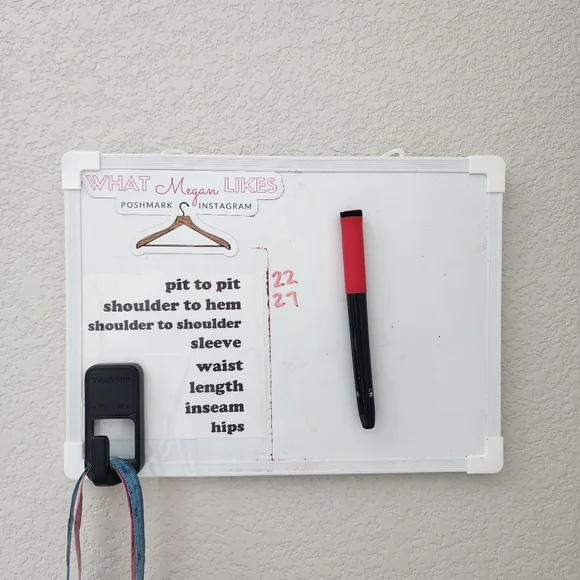 WHAT Megan LIKES
POSHMARK INSTAGRAM
pit to pit 22
shoulder to hem 27
shoulder to shoulder
sleeve
waist
length
inseam
hips